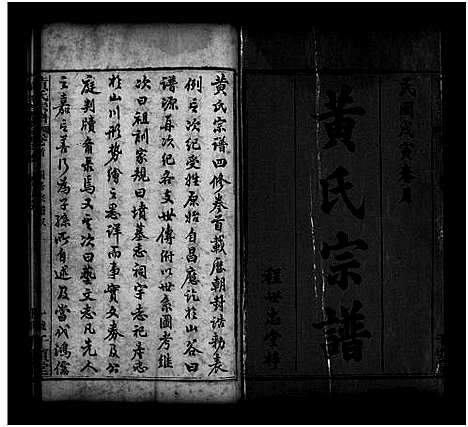 民國戊寅春月
黃氏宗譜
黃氏宗譜四修卷首載歷朝封誥勅表
例之次紀受姓原始自昌應訖於山谷曰
譜源再次紀各支世傳附以世系圖考繼
次曰祖訓家規曰墳墓志祠宇志祀產志
於山川形勢繪之悉詳而事實文券及公
庭判牘者最焉又其次曰藝文志凡先人
之嘉言善行為子孫所有述及當代鴻儒